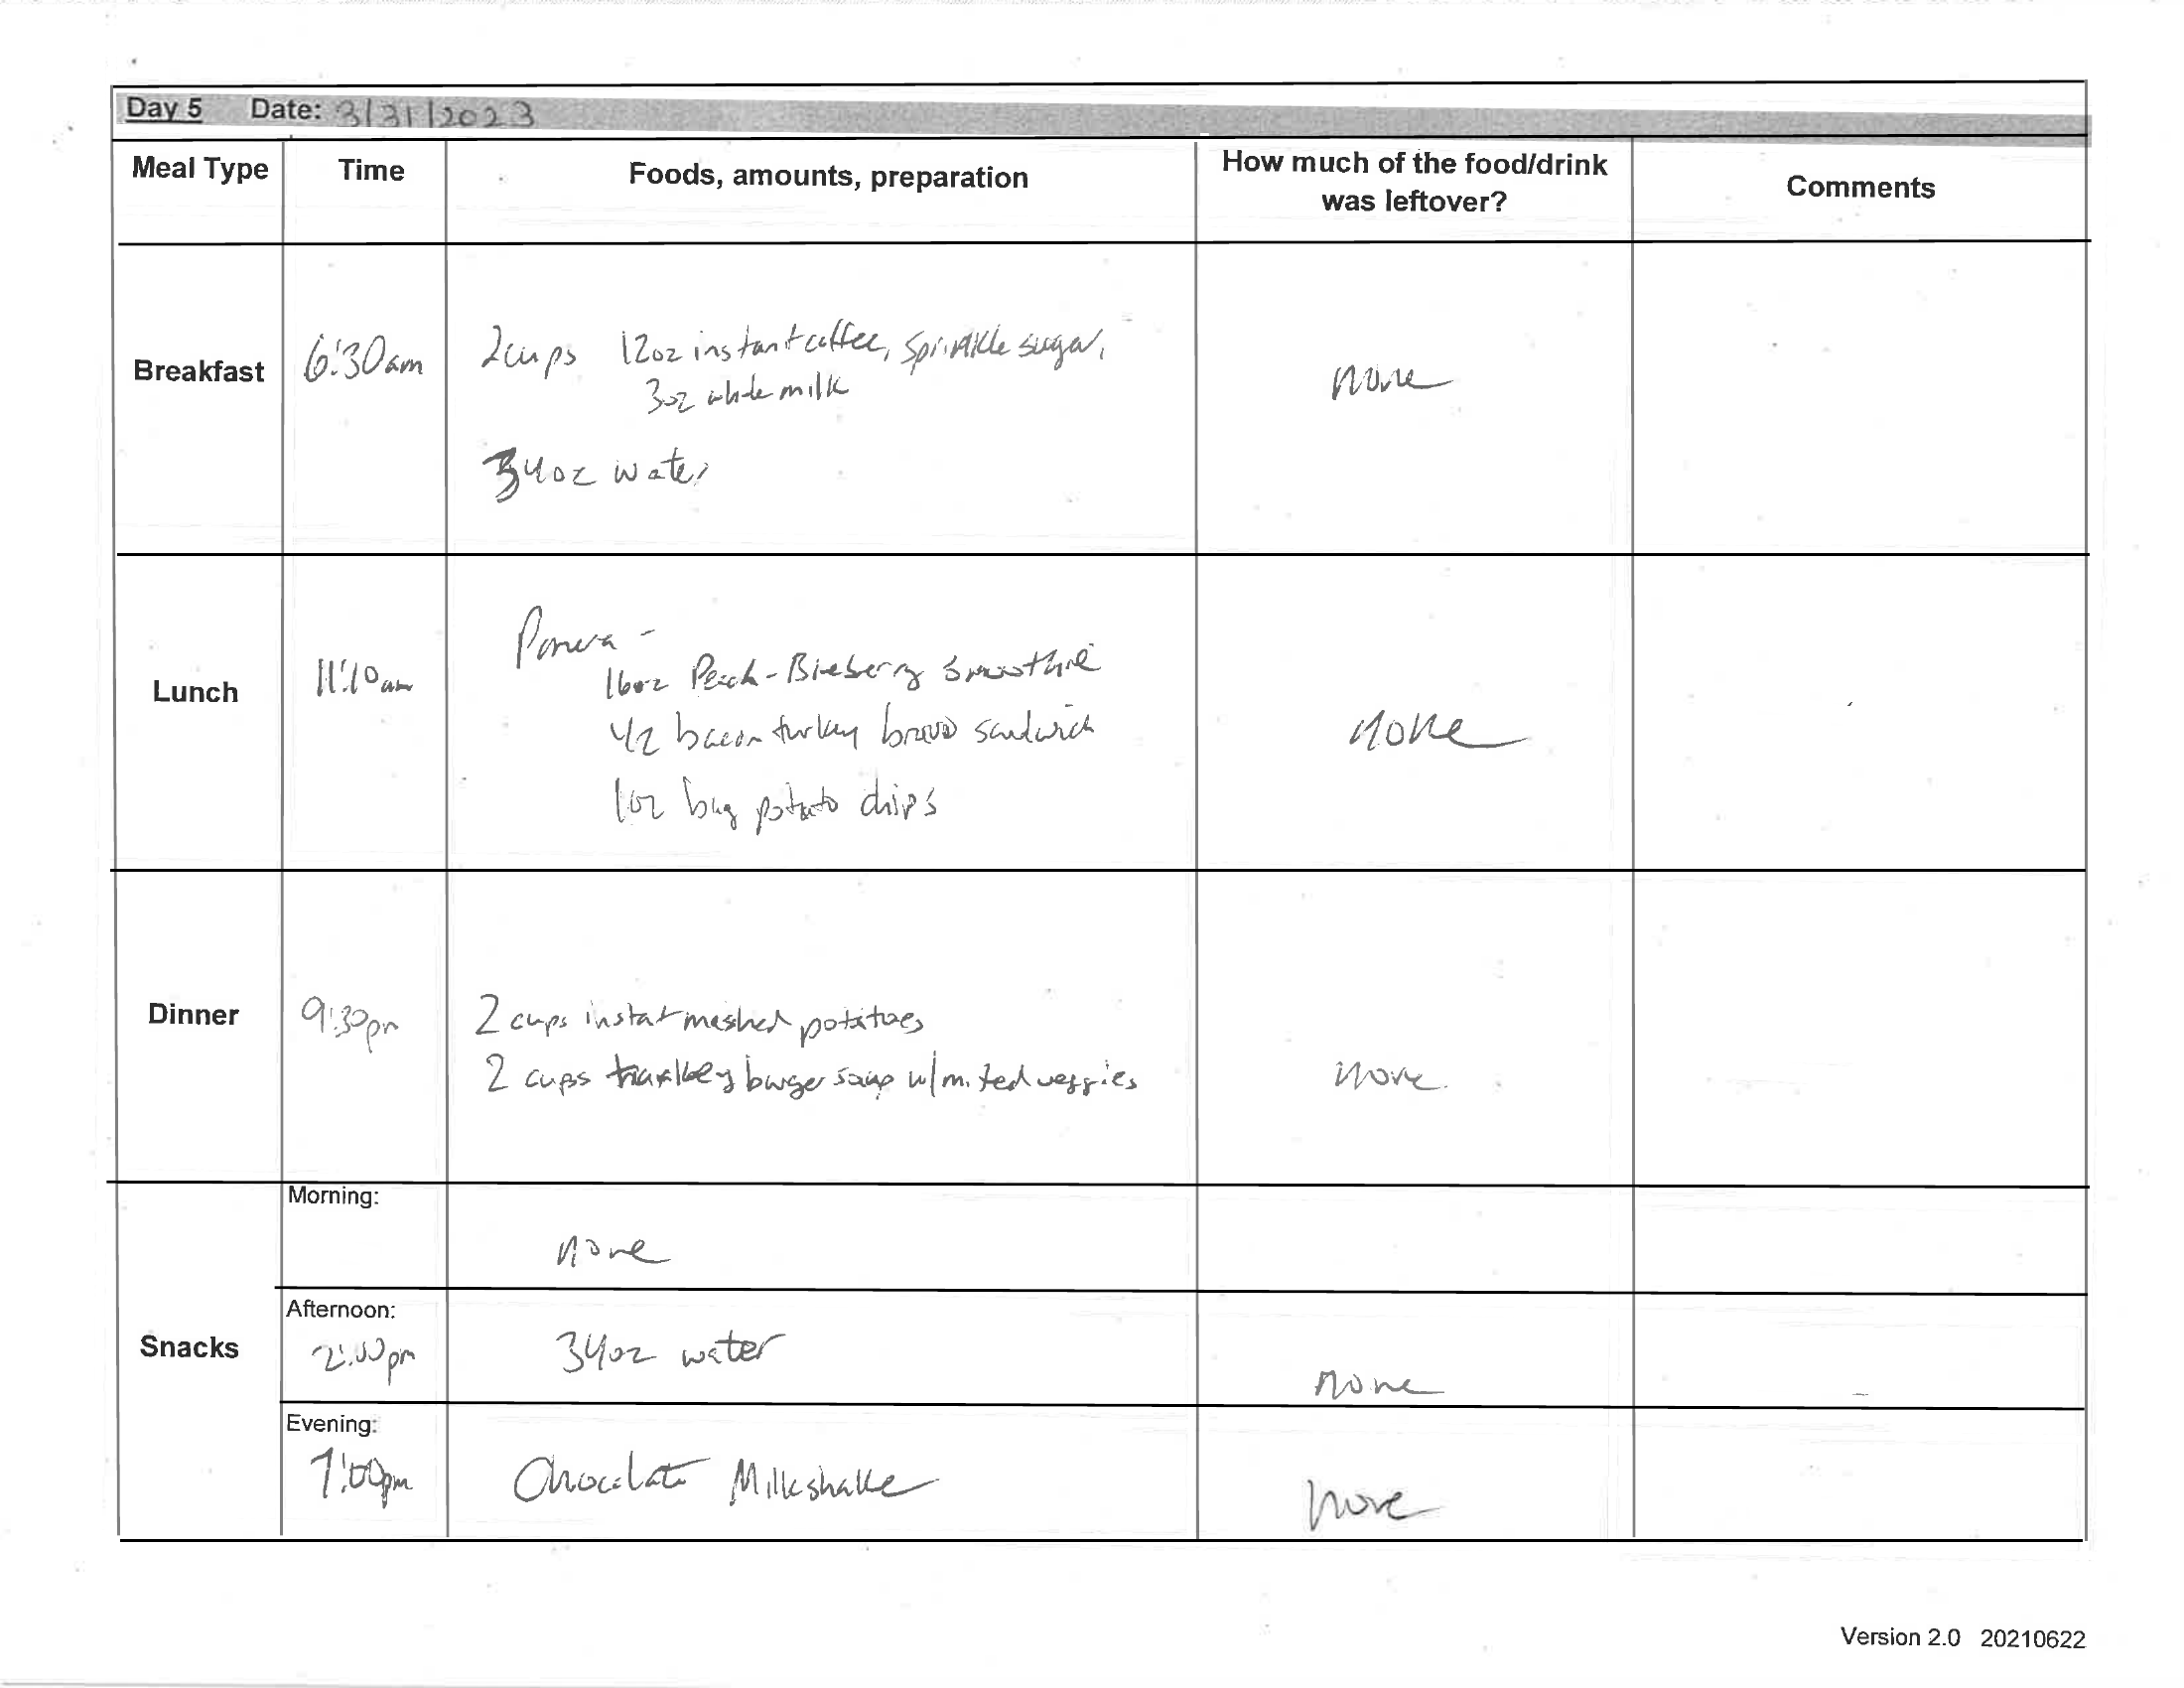 Day 5 Date: 3/31/2023
Meal Type Time Foods, amounts, preparation How much of the food/drink was leftover? Comments
Breakfast 6:30am 2cups 12oz instant coffee, sprinkle sugar,
3oz whole milk
none
34oz water
Lunch 11:10am Panera -
16oz Peach-Blueberry Smoothie
1/2 bacon turkey bravo sandwich
none
1oz bag potato chips
Dinner 9:30pm 2 cups instant mashed potatoes
2 cups turkey burger soup w/ mixed veggies
none
Snacks
Morning:
none
Afternoon:
2:00pm 34oz water
none
Evening:
7:00pm Chocolate Milkshake
none
Version 2.0 20210622